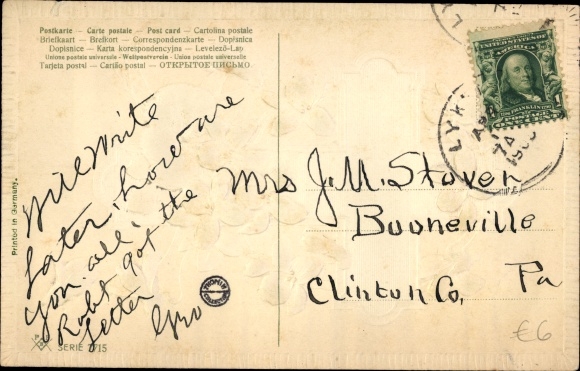 Postkarte — Carte postale — Post card — Cartolina postale
Briefkaart — Brefkort — Correspondenzkarte — Dopisnica
Dopisnice — Karta korespondencyjna — Levelező-Lap
Unione postale universale — Weltpostverein — Union postale universelle
Tarjeta postal — Cartão postal — ОТКРЫТОЕ ПИСЬМО
Will Write
Later, how are
you all,
Robt got the
letter
Printed in Germany.
SERIE 7715
UNITED STATES OF
AMERICA
FRANKLIN
POSTAGE
LYK
1908
Mrs J. M. Stover
Booneville
Clinton Co, Pa
€6